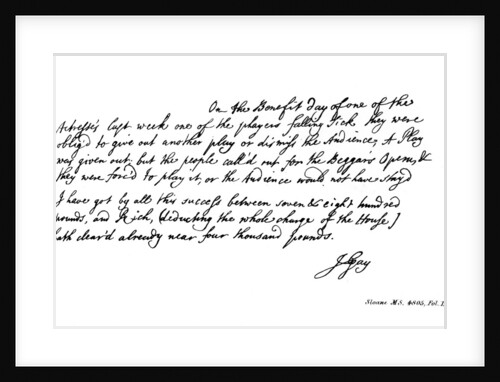 On the Benefit day of one of the
Actresse's last week one of the players falling sick they were
oblig'd to give out another play or dismiss the Audience, A Play
was given out, but the people call'd out for the Beggar's Opera, &
they were forc'd to play it, or the Audience would not have stayd
I have got by all this success between seven & eight hundred
pounds, and Rich, (deducting the whole charge of the House)
hath clear'd already near four thousand pounds.
J Gay
Sloane MS. 4805, Fol. 1